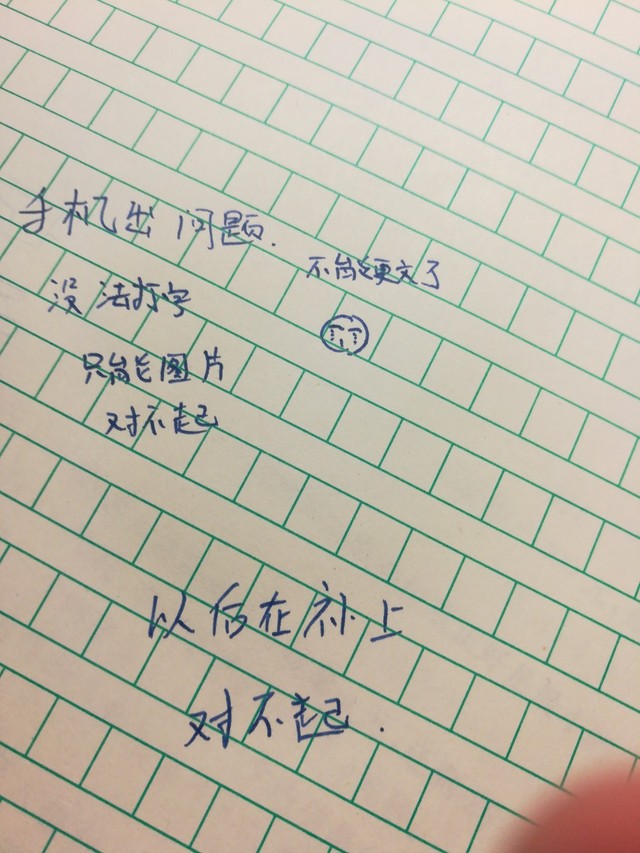 手机出问题.
不能更文了
没法打字
只能图片
对不起
以后在补上
对不起.